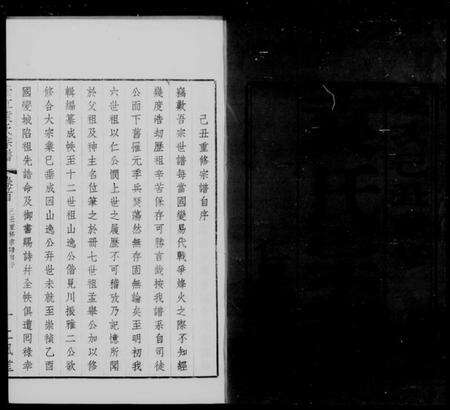 己丑重修宗譜自序
竊歎吾宗世譜每當國變易代戰爭烽火之際不知經
幾度浩劫歷祖辛苦保存可勝言哉按我譜系自司徒
公而下舊罹元季兵燹蕩然無存固無論矣至明初我
六世祖以仁公憫上世之履歷不可稽攷乃記憶所聞
於父祖及神主名位筆之於冊七世祖孟舉公加以修
輯編纂成帙至十二世祖山逸公偕見川振雅二公欲
修合大宗彙已垂成因山逸公弃世未就至崇禎乙酉
國變城陷祖先誥命及御書賜詩并全帙俱遭回祿幸
己丑重修宗譜自序